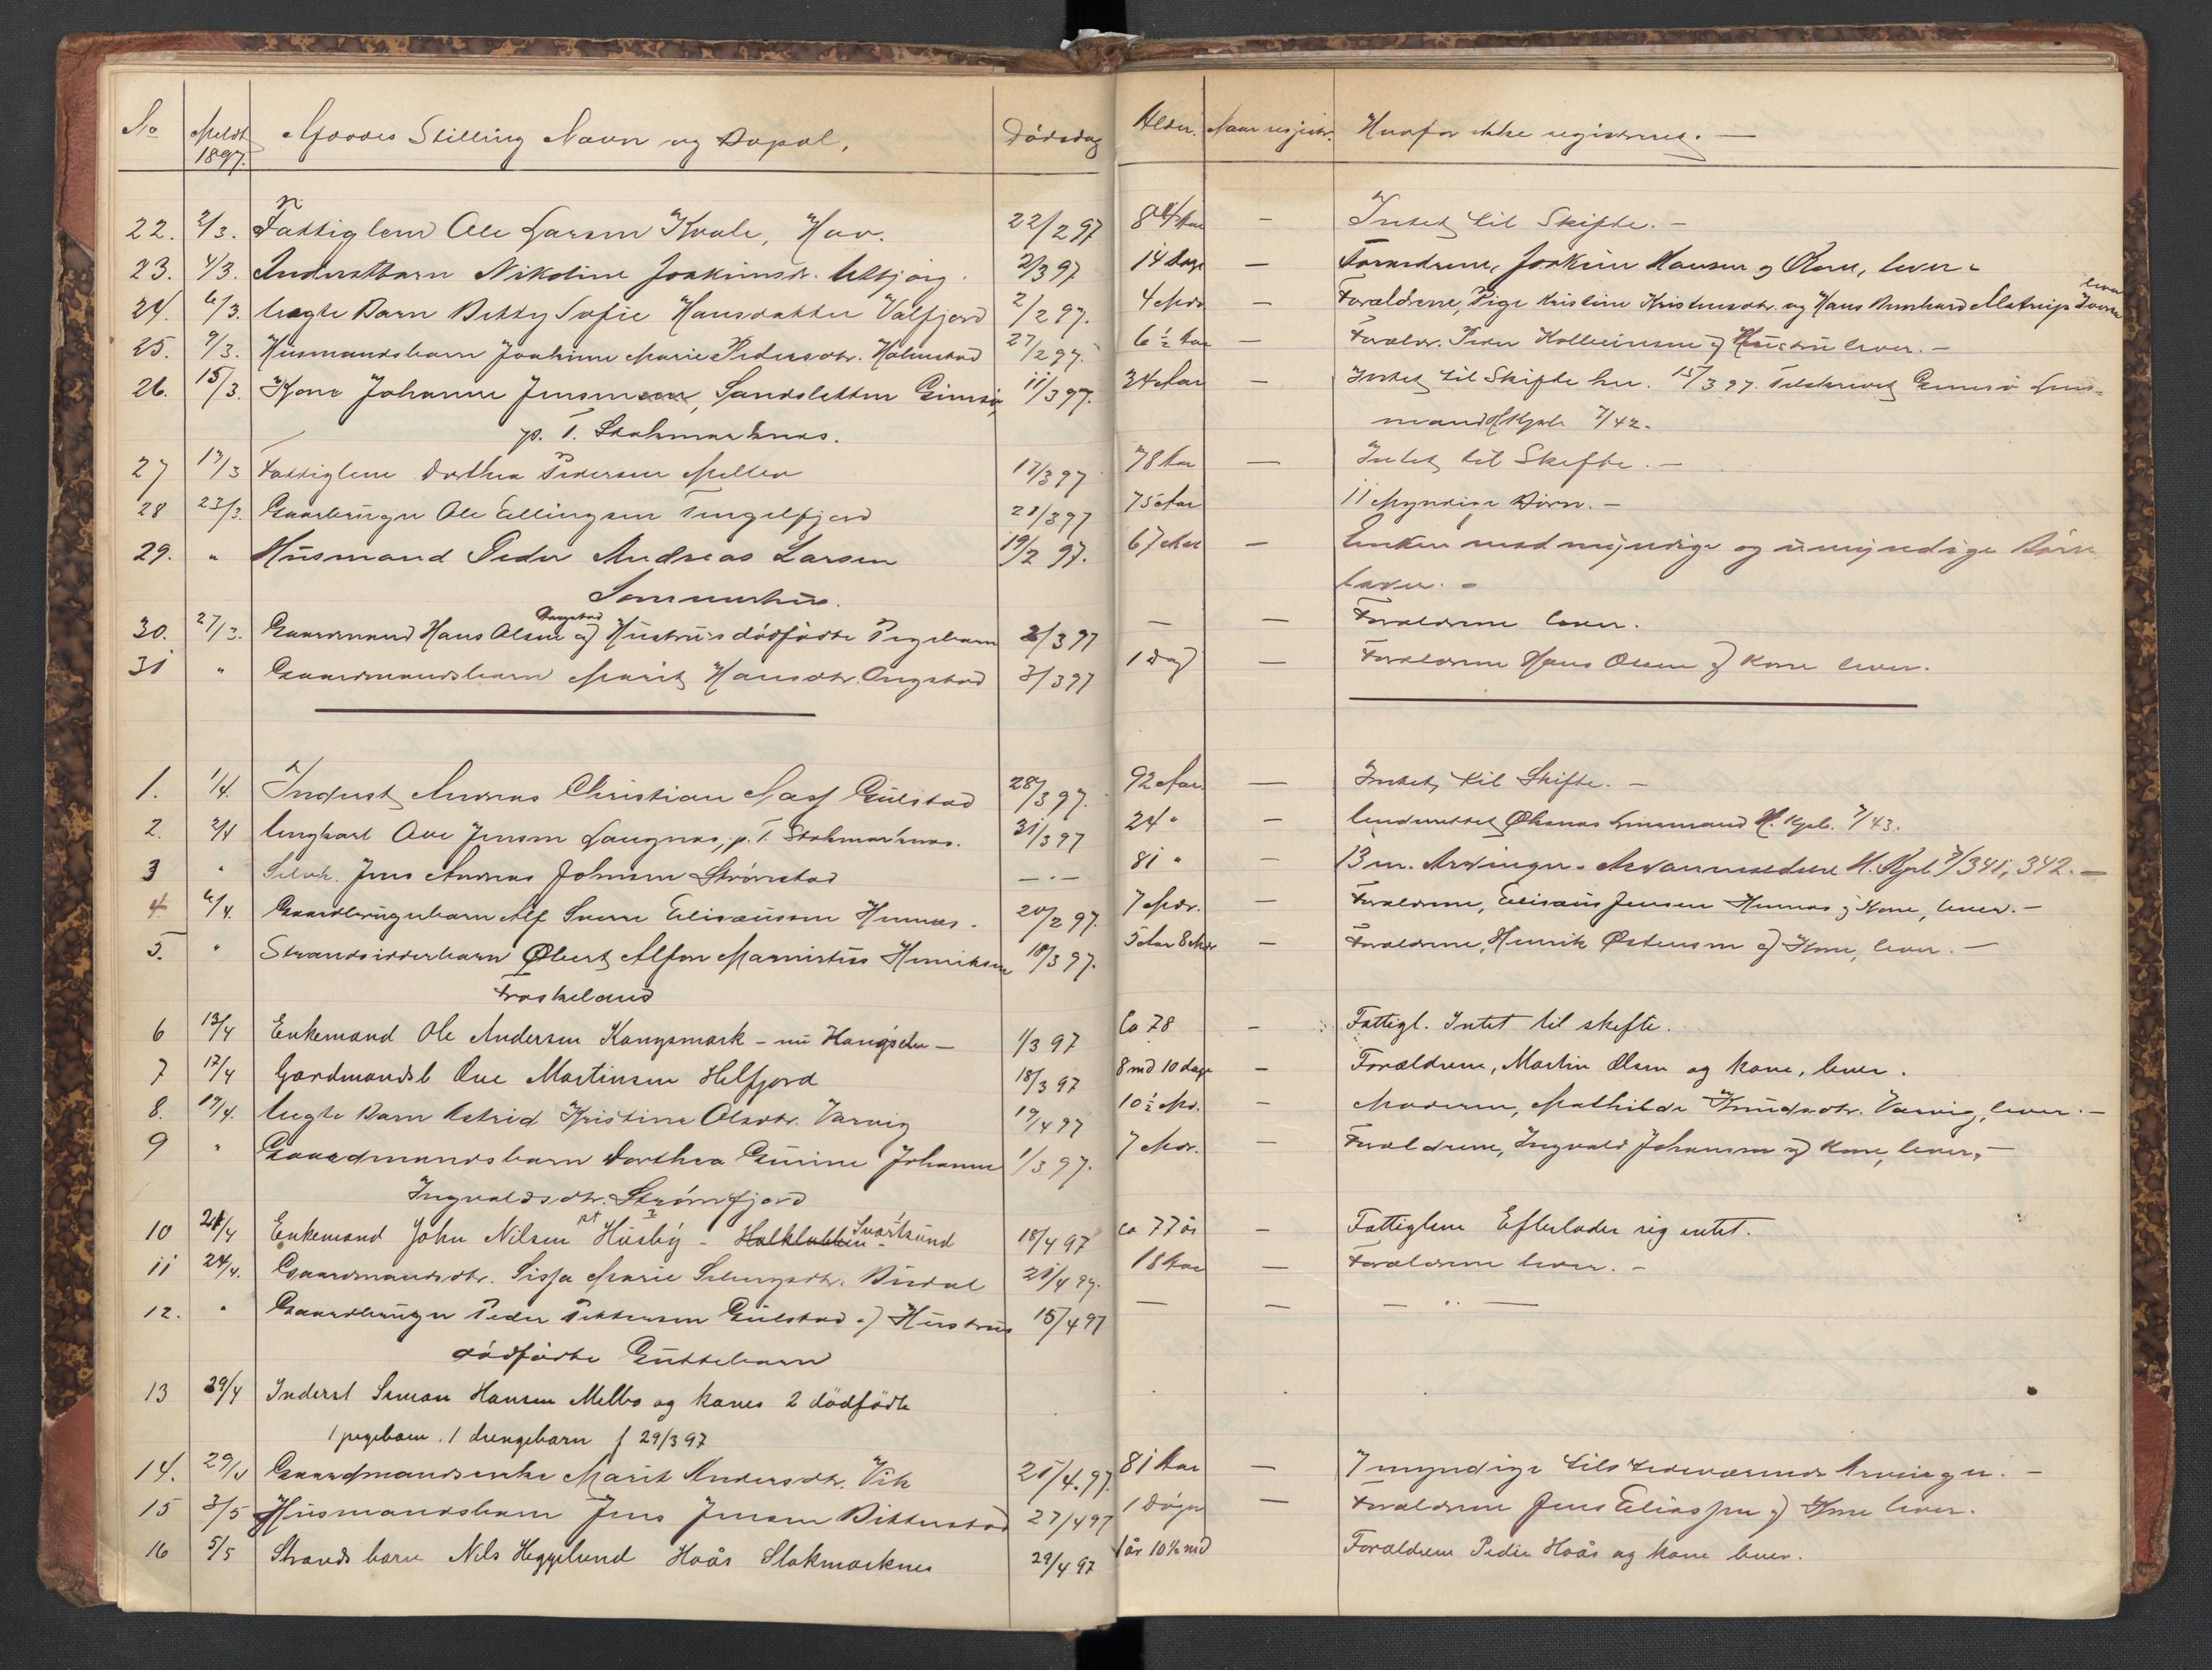 No Meldt 1897. Afdødes Stilling Navn og Bopæl. Dødsdag Alder. Naar registr. Hvorfor ikke registreres. —
22. 2/3. Fattiglem Ole Larsen Kvale, Hav. 22/2 97 84 Aar — Intet til Skifte. —
23. 4/3. Inderstbarn Nikoline Joakimsdr. Uthjørg 2/3 97 14 Dage — Forældrene, Joakim Hansen og Kone, lever.
24. 6/3. Uægte Barn Betty Sofie Hansdatter Valfjord 2/2 97. 4 Mdr — Forældrene, Pige Kristine Kristensdtr. og Hans Bernhard Alstrup lever
25. 9/3. Husmandsbarn Joakime Marie Pedersdtr. Holmstad 27/2 97. 6 ½ Aar — Foreldr. Peder og Hustru lever. —
26. 15/3. Kone Johanne Jensen, Sandsletten Gimsø, 11/3 97. 34 Aar — Intet til Skifte her. 15/3 97. Tilskrevet Gimsø Lens-
p. T. Stokmarknes. mand H Kpb 7/42.
27 17/3 Fattiglem Dorthea Pedersen Melbo 17/3 97 78 Aar — Intet til Skifte. —
28 23/3. Gaardbruger Ole Ellingsen Tengelfjord 21/3 97 75 Aar 11 Myndige Børn. —
29. " Husmand Peder Andreas Larsen 19/2 97. 67 Aar — Enken med myndige og umyndige Børn
Sommerhus. lever. —
30. 27/3. Gaardmand Hans Olsen Ongstad og Hustrus dødfødte Pigebarn 2/3 97 — — Forældrene lever.
31 " Gaardmandsbarn Marit Hansdtr. Ongstad 3/3 97 1 Dag — Forældrene Hans Olsen og Kone lever.
1. 1/4. Inderst Andreas Christian Gulstad 28/3 97. 92 Aar — Intet til Skifte. —
2. 2/4 Ungkarl Ove Jensen Laugnes, p. T. Stokmarknes. 31/3 97 24 " — Underrettet Øksnes Lensmand H. Kpb. 7/43.
3 " Selvh. Jens Andreas Johnsen Strømstad — . — 81 " — 13 m. Arvinger. H. Kpb 7/341, 342. —
4 6/4. Gaardbrugerbarn Alf Sverre Elisæussen Hennes. 20/2 97. 7 Mdr. — Forældrene, Elisæus Jensen Hennes og Kone, lever. —
5. " Strandsidderbarn Øbert Alfon Marinius Henriksen 18/3 97. 5 Aar 8 Mdr — Forældrene, Henrik Østensen og Kone, lever. —
Froskeland
6 13/4 Enkemand Ole Andersen Kongsmark - nu - 1/3 97 Ca 78 — Fattigl. Intet til skifte.
7 17/4 Gardmandsb Ove Martinsen Helfjord 18/3 97 8 md 10 dage — Forældrene, Martin Olsen og kone, lever.
8. 19/4. Uægte Barn Astrid Kristine Olsdtr. Varvig 19/4 97 10 ½ Md. — Moderen, Mathilde Knudsdtr. Varvig, lever. —
9 " Gaardmandsbarn Dorthea Gurine Johanne 1/3 97. 7 Mdr. — Forældrene, Ingvald Johansen og Kone, lever. —
Ingvaldsdtr. Strømfjord
10 21/4 Enkemand John Nilsen Husby - Svartsund 18/4 97 ca 77 år — Fattiglem Efterlader sig intet.
11 24/4. Gaardmandsdtr. Sissa Marie Budal 21/4 97. 18 Aar — Forældrene lever. —
12. " Gaardbruger Peder Pettersen Gulstad og Hustrus 15/4 97 — — — " —
dødfødte Guttebarn
13 29/4 Inderst Simon Hansen Melbo og kones 2 dödfödte
1 pigebarn. 1 drengebarn f 29/3 97
14. 29/4 Gaardmandsenke Marit Andersdtr. Vik 25/4. 97. 81 Aar — 7 myndige tilstedeværende Arvinger. —
15 3/5 Husmandsbarn Jens Jensen Bitterstad 27/4 97 1 Døgn — Forældrene Jens Eliassen og Kone lever.
16 5/5 Strands barn Nils Heggelund Hoås Stokmarknes 29/4 97 1 år 10 ½ md Forældrene Peder Hoås og kone lever.